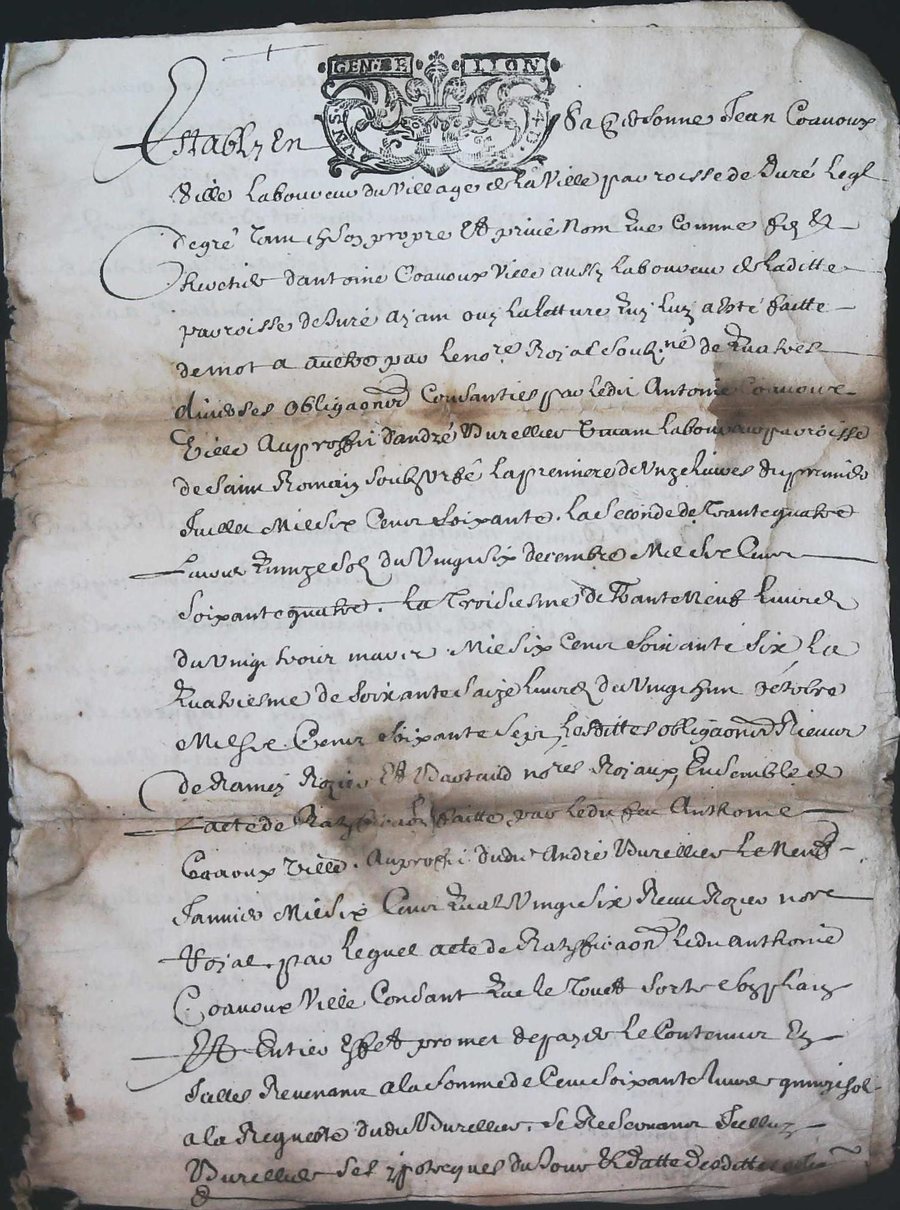 GEN. DE LION
VN S. 4 D.
Establ y En Sa personne Jean Coavoux
Ville Laboureur du Village de La Ville parroisse de Juré Leql
degré tam en Son propre Et privé Nom Que Comme fils &
heretier d'antoine Coavoux Ville aussy Laboureur de Laditte
parroisse de Juré ayam ouy La letture Quy Luy a esté faitte
de mot a autre par le nore. Royal Soubz.né de Quatres
diverses obligaons Consanties par ledit Antoine Coavoux
Ville Au proffit d'andré Burellier Laboureur parroisse
de Saint Romain Soubz Urfé La premiere de Unze livres du premier
Juillet Mil Six Cent Soixante. La Seconde de Trante quatre
Livres Quinze Solz du Vingt Six decembre Mil Six Cent
Soixante quatre. La Troisiesme de Trante Neuf Livres
du Vingt troir mars Mil Six Cent Soixante Six La
Quatriesme de Soixante Saize Livres du Vingt hun octobre
Mil Six Cent Soixante Sept Lesdittes obligaons Rieuvr
de Ramey Rozier Et Bartaud nores Royaux, Ensemble de
Lacte de Ratiffication faitte par ledit feu Anthoine
Coavoux Ville. Au proffit dudit André Burellier Le Neuf
Janvier Mil Six Cent Quat Vingt Six Receu Rozier nore
Royal. par Lequel acte de Ratyfficaon Ledit Anthoine
Coavoux Ville Consant Que Le Tout Sorte Son plain
Et Entier Effect promet de payer Le Contenur En
Jcelles Revenant a la Somme de Cent Soixante Livres quinze Sol
a la Requeste dudit Burellier. Se Reservant Jcelluy
Burellier Ses ypotecques du Jour & datte desdittes